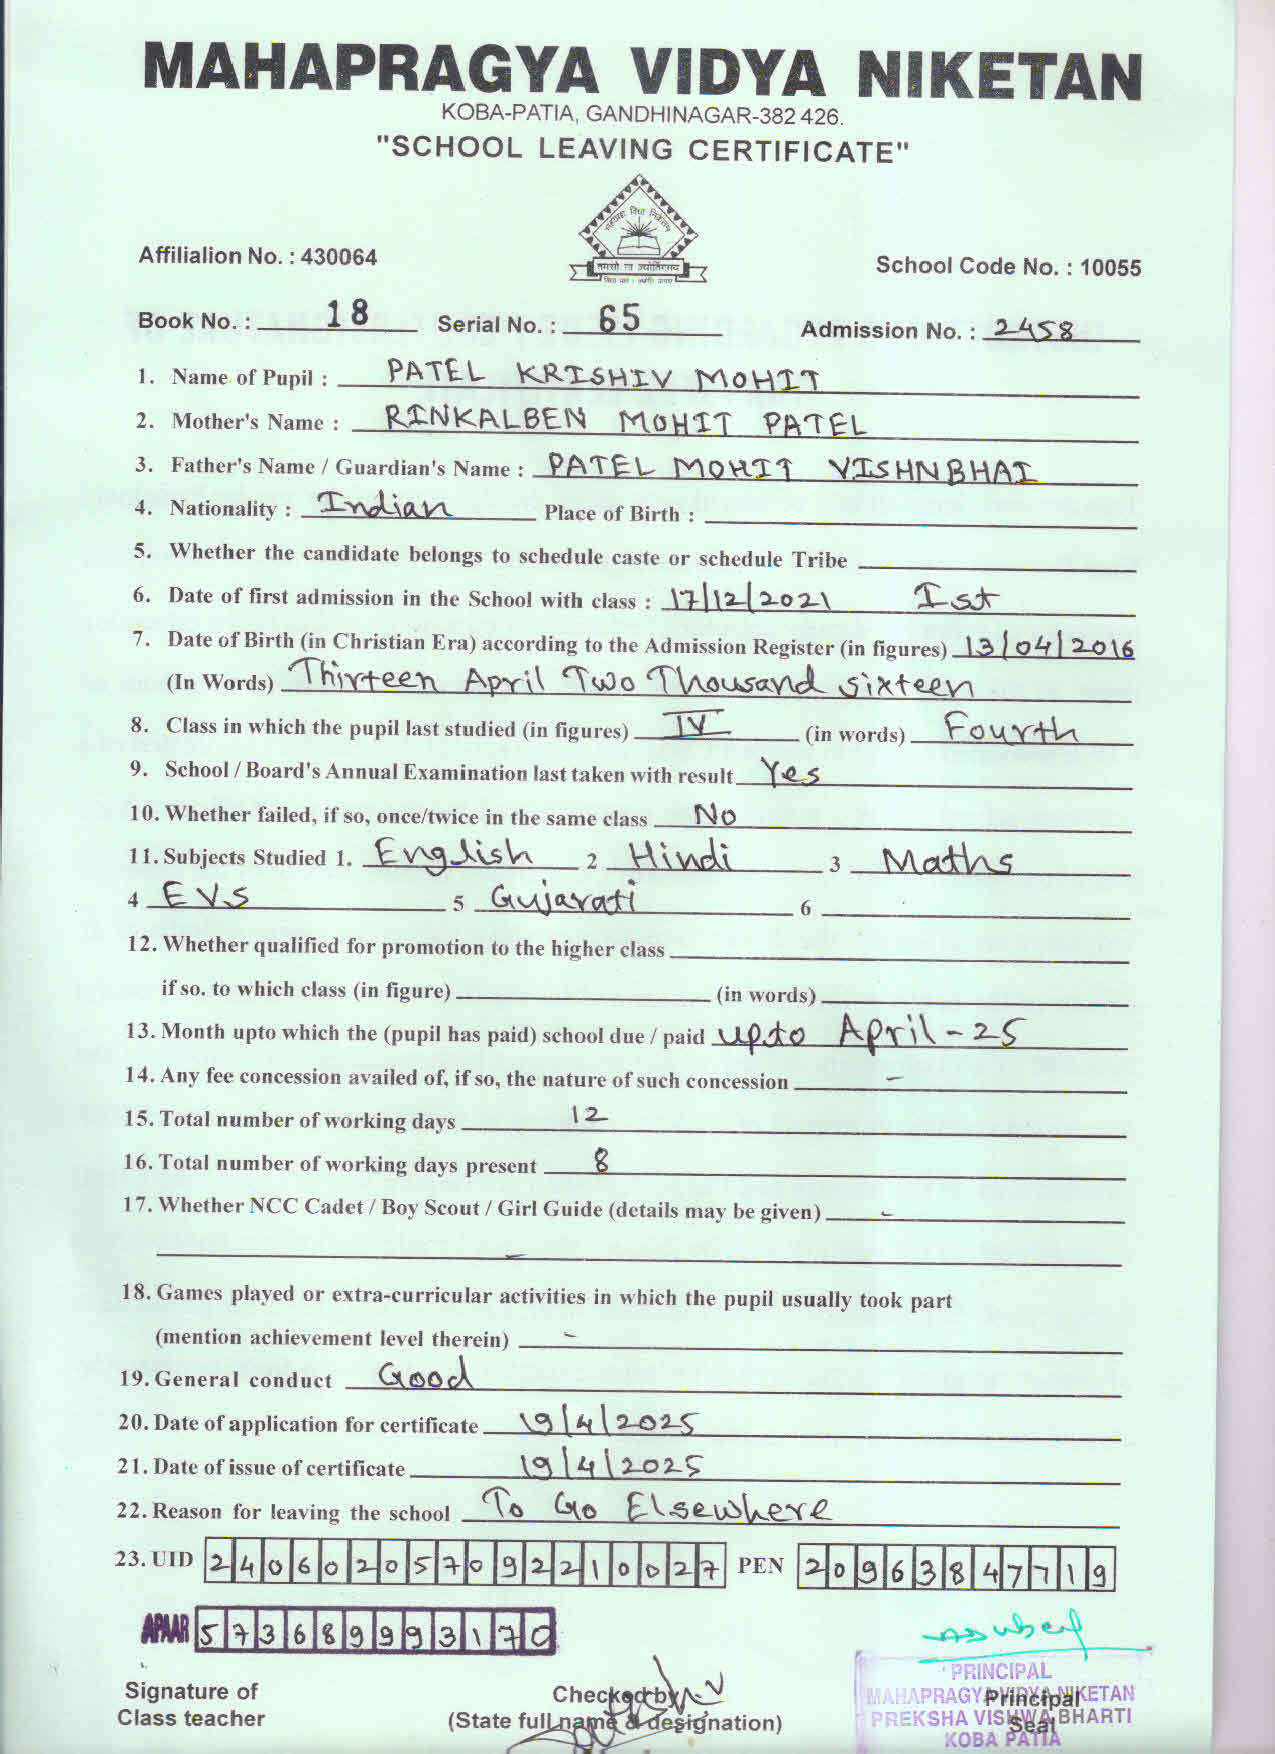 MAHAPRAGYA VIDYA NIKETAN
KOBA-PATIA, GANDHINAGAR-382 426.
"SCHOOL LEAVING CERTIFICATE"
महाप्रज्ञ विद्या निकेतन
तमसो मा ज्योतिर्गमय
Affilialion No. : 430064
School Code No. : 10055
Book No. : 18 Serial No. : 65 Admission No. : 2458
1. Name of Pupil : PATEL KRISHIV MOHIT
2. Mother's Name : RINKALBEN MOHIT PATEL
3. Father's Name / Guardian's Name : PATEL MOHIT VISHNBHAI
4. Nationality : Indian Place of Birth :
5. Whether the candidate belongs to schedule caste or schedule Tribe
6. Date of first admission in the School with class : 17/12/2021 Ist
7. Date of Birth (in Christian Era) according to the Admission Register (in figures) 13/04/2016
(In Words) Thirteen April Two Thousand sixteen
8. Class in which the pupil last studied (in figures) IV (in words) Fourth
9. School / Board's Annual Examination last taken with result Yes
10. Whether failed, if so, once/twice in the same class No
11. Subjects Studied 1. English 2 Hindi 3 Maths
4 EVS 5 Gujarati 6
12. Whether qualified for promotion to the higher class
if so. to which class (in figure) (in words)
13. Month upto which the (pupil has paid) school due / paid upto April - 25
14. Any fee concession availed of, if so, the nature of such concession -
15. Total number of working days 12
16. Total number of working days present 8
17. Whether NCC Cadet / Boy Scout / Girl Guide (details may be given) -
-
18. Games played or extra-curricular activities in which the pupil usually took part
(mention achievement level therein) -
19. General conduct Good
20. Date of application for certificate 19/4/2025
21. Date of issue of certificate 19/4/2025
22. Reason for leaving the school To Go Elsewhere
23. UID 240602057092210027 PEN 20963847719
APAAR 573689993170
Signature of
Class teacher
Checked by
(State full name & designation)
Principal
Seal
PRINCIPAL
MAHAPRAGYA VIDYA NIKETAN
PREKSHA VISHWA BHARTI
KOBA PATIA